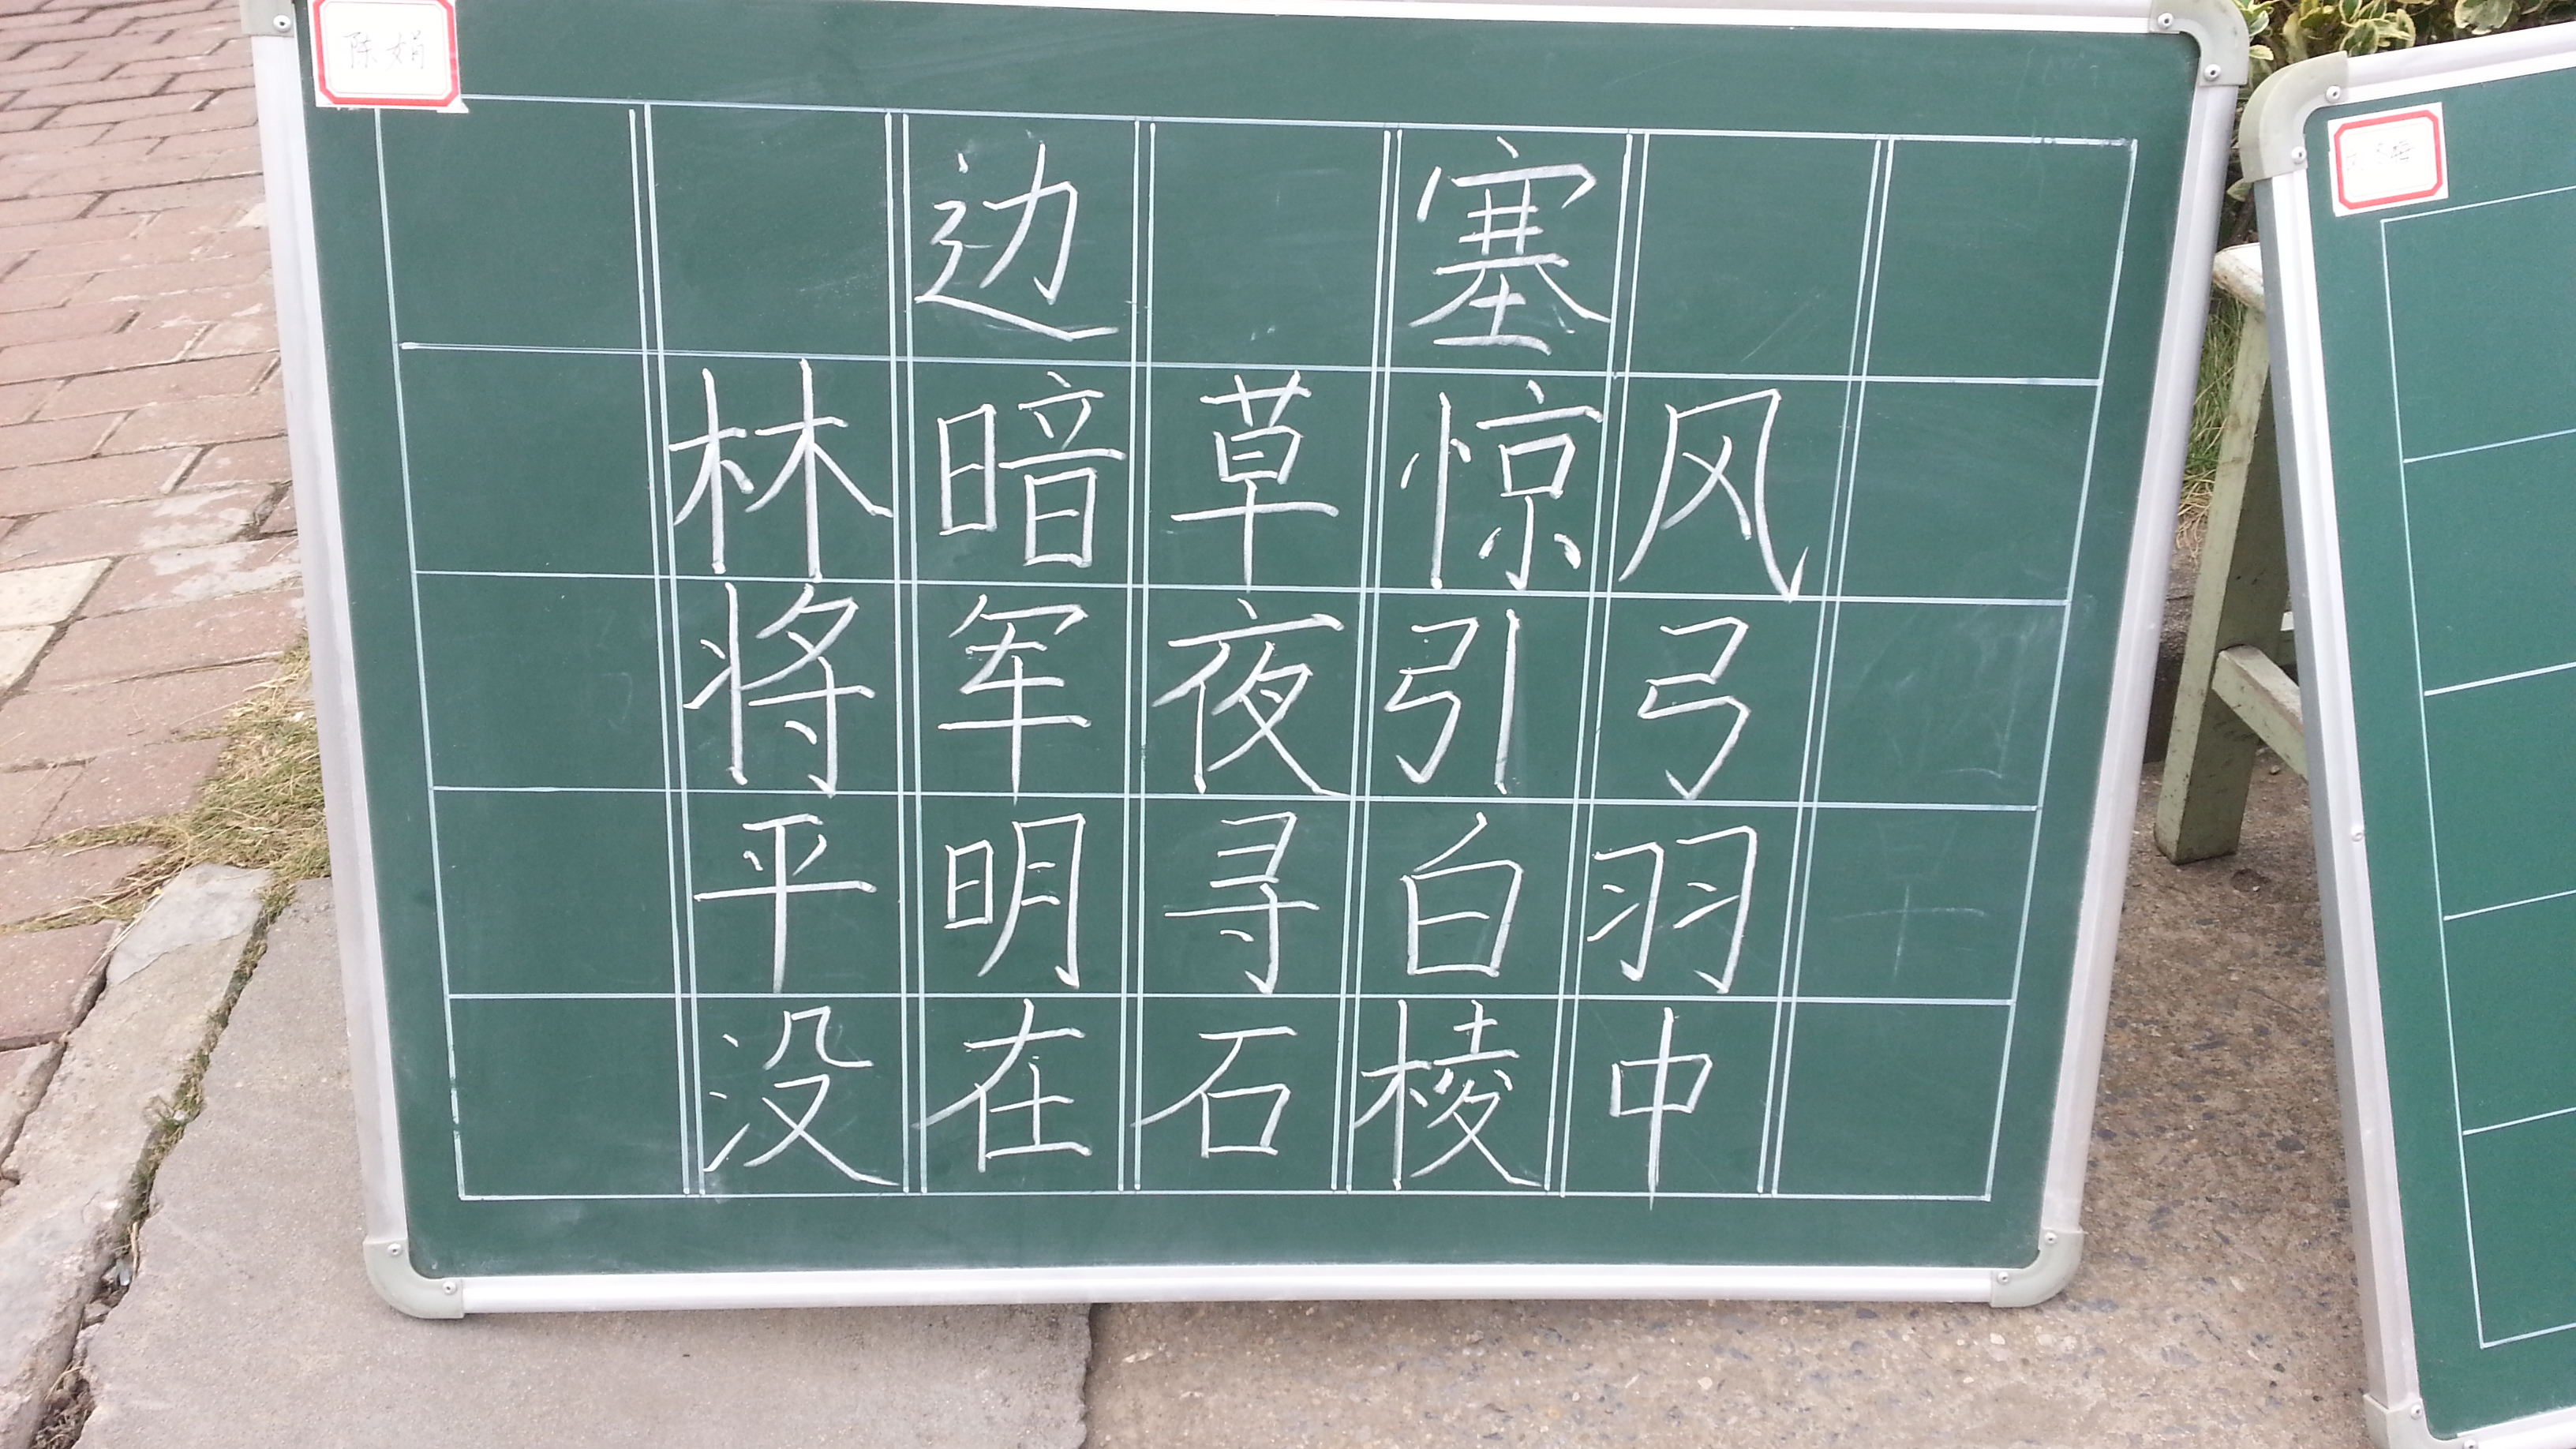 陈娟
边塞
林暗草惊风
将军夜引弓
平明寻白羽
没在石棱中